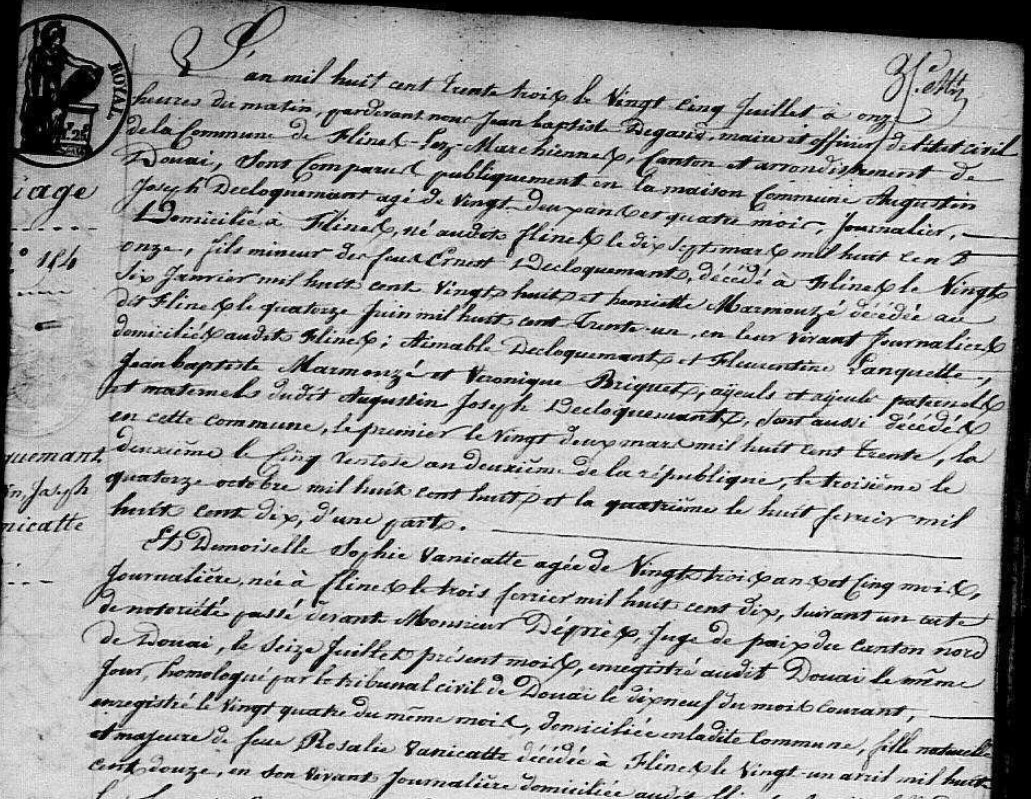 ROYAL
L'an mil huit cent trente trois le Vingt Cinq Juillet à onze
heures du matin, pardevant nous Jean baptiste Degand, maire et officier de l'état civil
de la Commune de Flines-Lez-Marchiennes, Canton et arrondissement de
Douai, Sont Comparus publiquement en la maison Commune Augustin
Joseph Decloquemant agé de vingt-deux ans et quatre mois, Journalier,
Domiciliée à Flines, né audit flines le dix sept mars mil huit cent
onze, fils mineur des feus Ernest Decloquemant, décédé à Flines le Vingt
Six Janvier mil huit cent Vingt huit et henriette Marmouzé décédée au
dit Flines le quatorze Juin mil huit cent Trente-un, en leur vivant Journaliers
domiciliés audit Flines; Aimable Decloquemant et Fleurentine Lanquette,
Jean baptiste Marmouzé et Véronique Briquet, ayeuls et ayeule paternels
et maternels dudit Augustin Joseph Decloquemant, sont aussi décédés
en cette commune, le premier le Vingt deux mars mil huit cent trente, la
deuxième le Cinq Ventose an deuxième de la république, le troisième le
quatorze octobre mil huit cent huit et la quatrième le huit fevrier mil
huit cent dix, d'une part.
Et Demoiselle Sophie Vanicatte agée de Vingt trois ans et Cinq mois,
Journalière, née à flines le trois fevrier mil huit cent dix, suivant un acte
de notoriété passé devant Monsieur Déprés, Juge de paix du Canton nord
de Douai, le Seize Juillet présent mois, enregistré audit Douai le même
Jour, homologué par le tribunal civil de Douai le dixneuf du mois courant,
enregistré le Vingt quatre du même mois, domiciliée en ladite Commune, fille naturelle
et majeure de feue Rosalie Vanicatte décédée à Flines le Vingt-un avril mil huit
cent douze, en son vivant Journalière domiciliée audit
iage
154
quemant
Joseph
nicatte